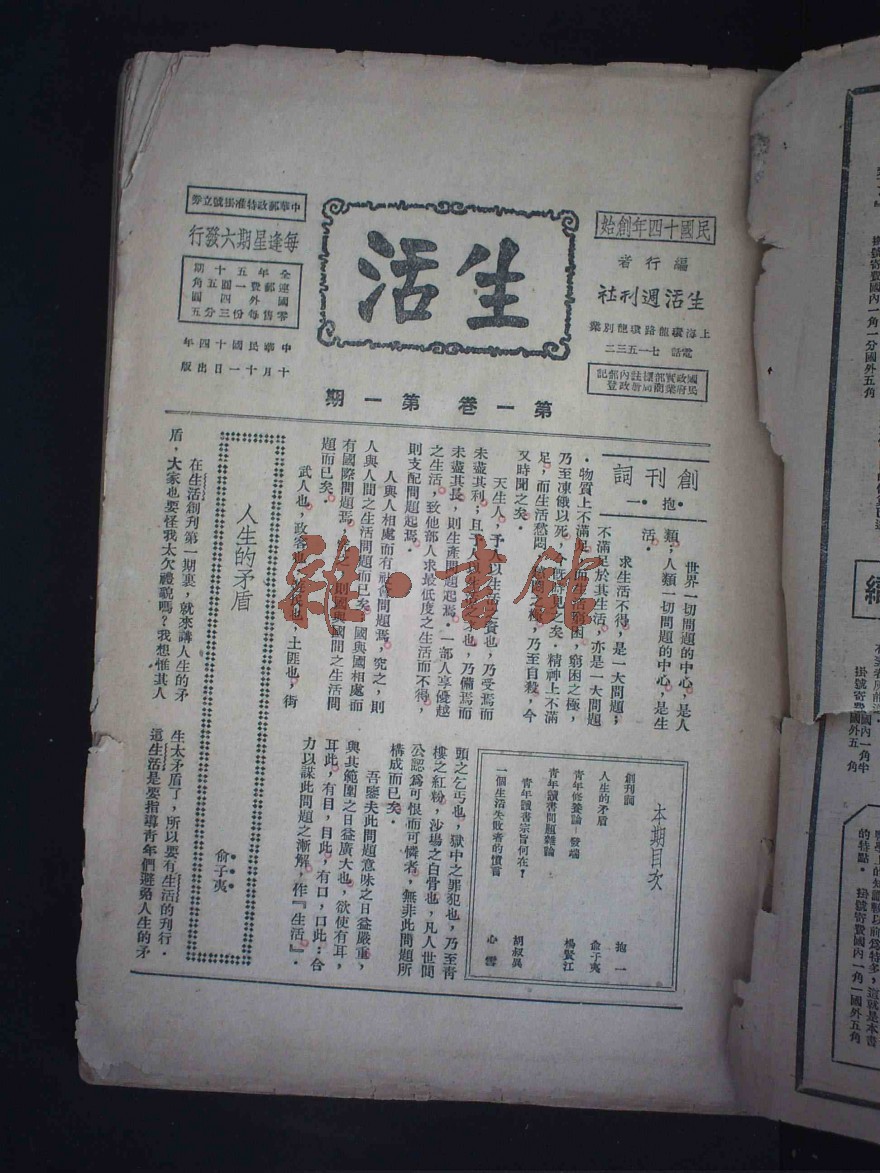 民國十四年創始
編行者
生活週刊社
上海環龍路環龍別業
電話 七一五三二
生活
中華郵政特准掛號立券
每逢星期六發行
全年五十期
連郵費一圓五角
國外四圓
零售每份三分五
中華民國十四年
十月十一日出版
第一卷 第一期
創刊詞
抱一
世界一切問題的中心，是人
類；人類一切問題的中心，是生
活．
求生活不得，是一大問題；
不滿足於其生活，亦是一大問題
．物質上不滿足，而生活窮困，窮困之極，
乃至凍餓以死，今既時見之矣．精神上不滿
足，而生活愁悶，愁悶之極，乃至自殺，今
又時聞之矣．
天生人，予人以生活之資也，乃受焉而
未盡其利，且予人以生活之具也，乃備焉而
未盡其長，則生產問題起焉．一部人享優越
之生活，致他部人求最低度之生活而不得，
則支配問題起焉．
人與人相處而有社會問題焉．究之，則
人與人間之生活問題而已矣．國與國相處而
有國際問題焉，究之，則國與國間之生活問
題而已矣．
武人也，政客也，土匪也，街
頭之乞丐也，獄中之罪犯也，乃至青
樓之紅粉，沙場之白骨也，凡人世間
公認為可恨而可憐者，無非此問題所
構成而已矣．
吾鑒夫此問題意味之日益嚴重，
與其範圍之日益廣大也，欲使有耳，
耳此，有目，目此，有口，口此：合
力以謀此問題之漸解，作『生活』．
本期目次
創刊詞 抱一
人生的矛盾 俞子夷
青年修養論－發端 楊賢江
青年讀書問題雜論
青年讀書宗旨何在？ 胡叔異
一個生活失敗者的憤言 心雪
人生的矛盾
俞子夷
在生活創刊第一期裏，就來講人生的矛
盾，大家也要怪我太欠禮貌嗎？我想惟其人
生太矛盾了，所以要有生活的刊行．
這生活是要指導青年們避免人生的矛
掛號寄費國內一角一分國外五角
掛號寄費國內一角一國外五角
的特點．
龍·書館